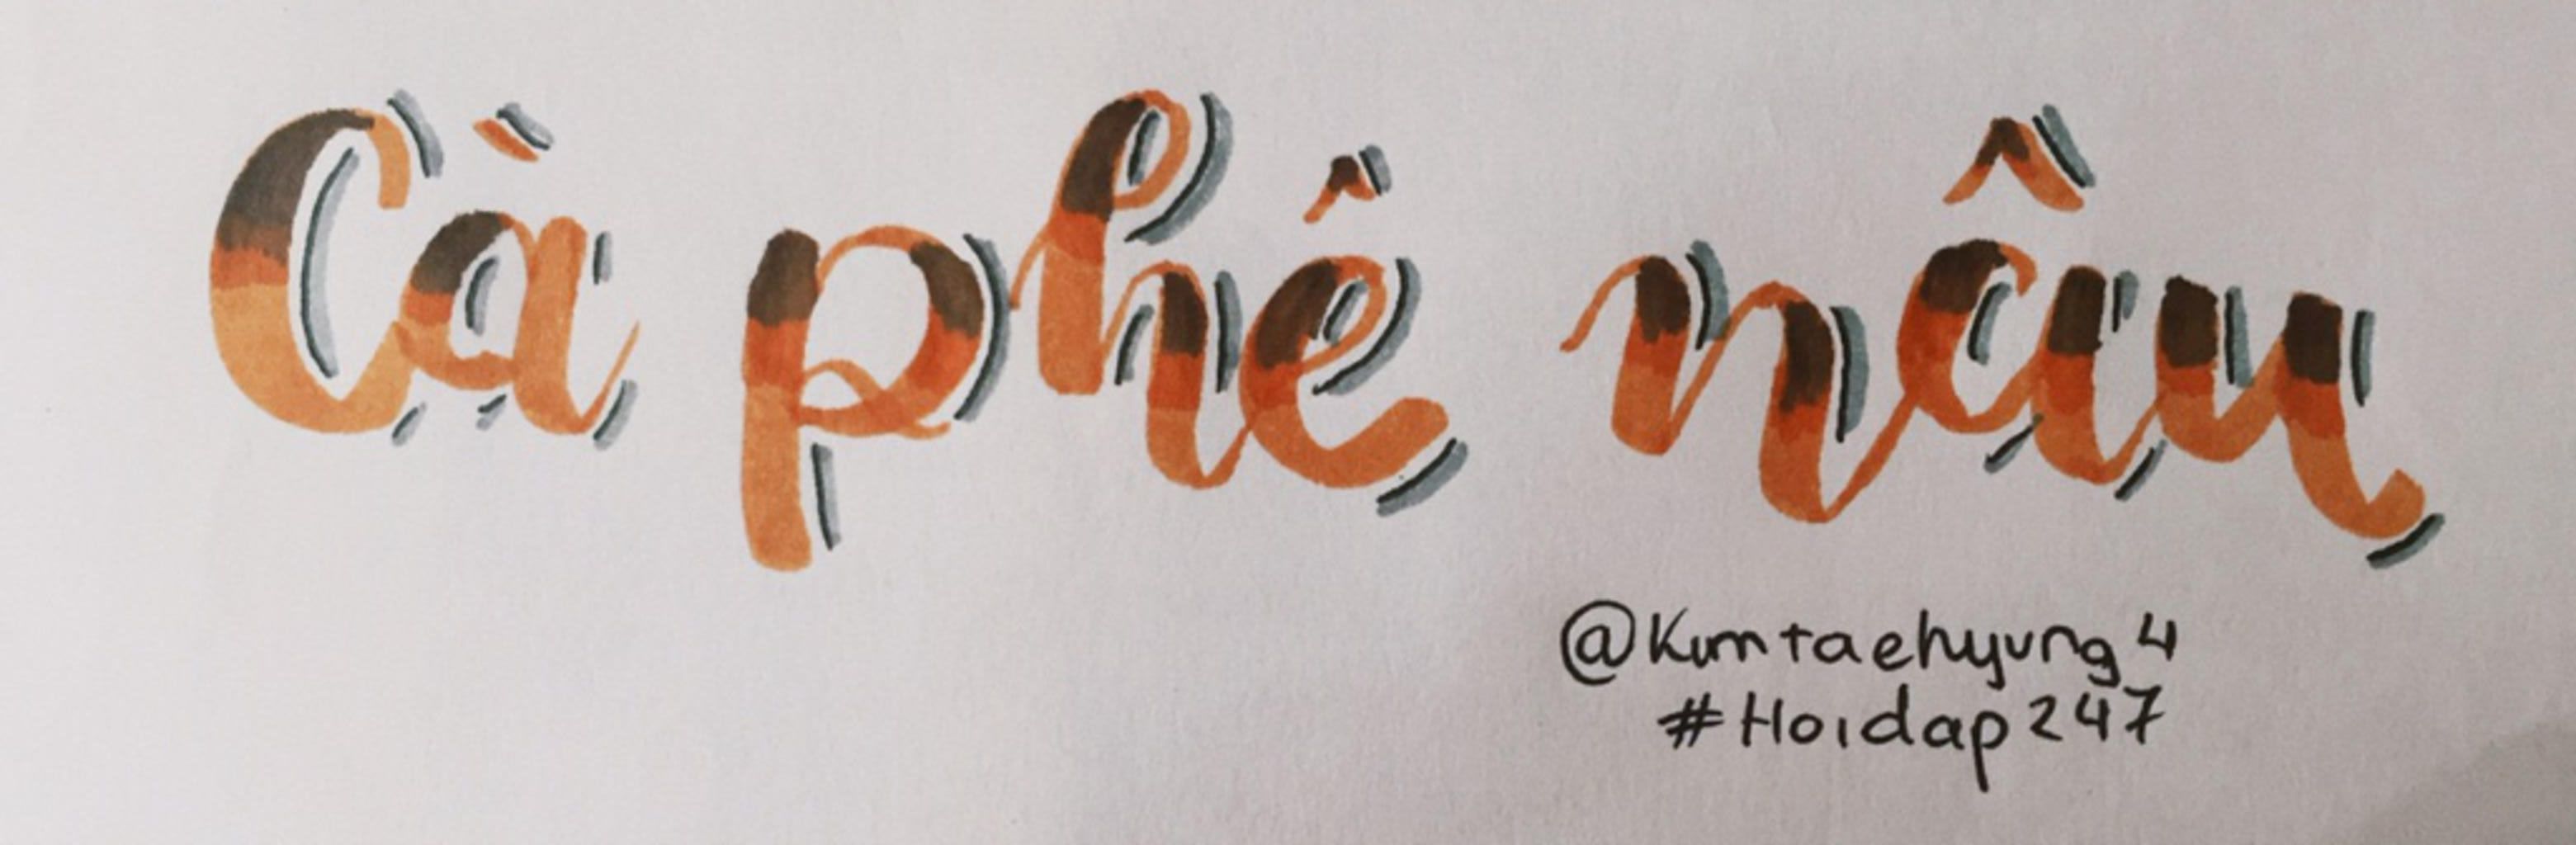 Cà phê nâu
@Kimtaehyung4
#Hoidap247